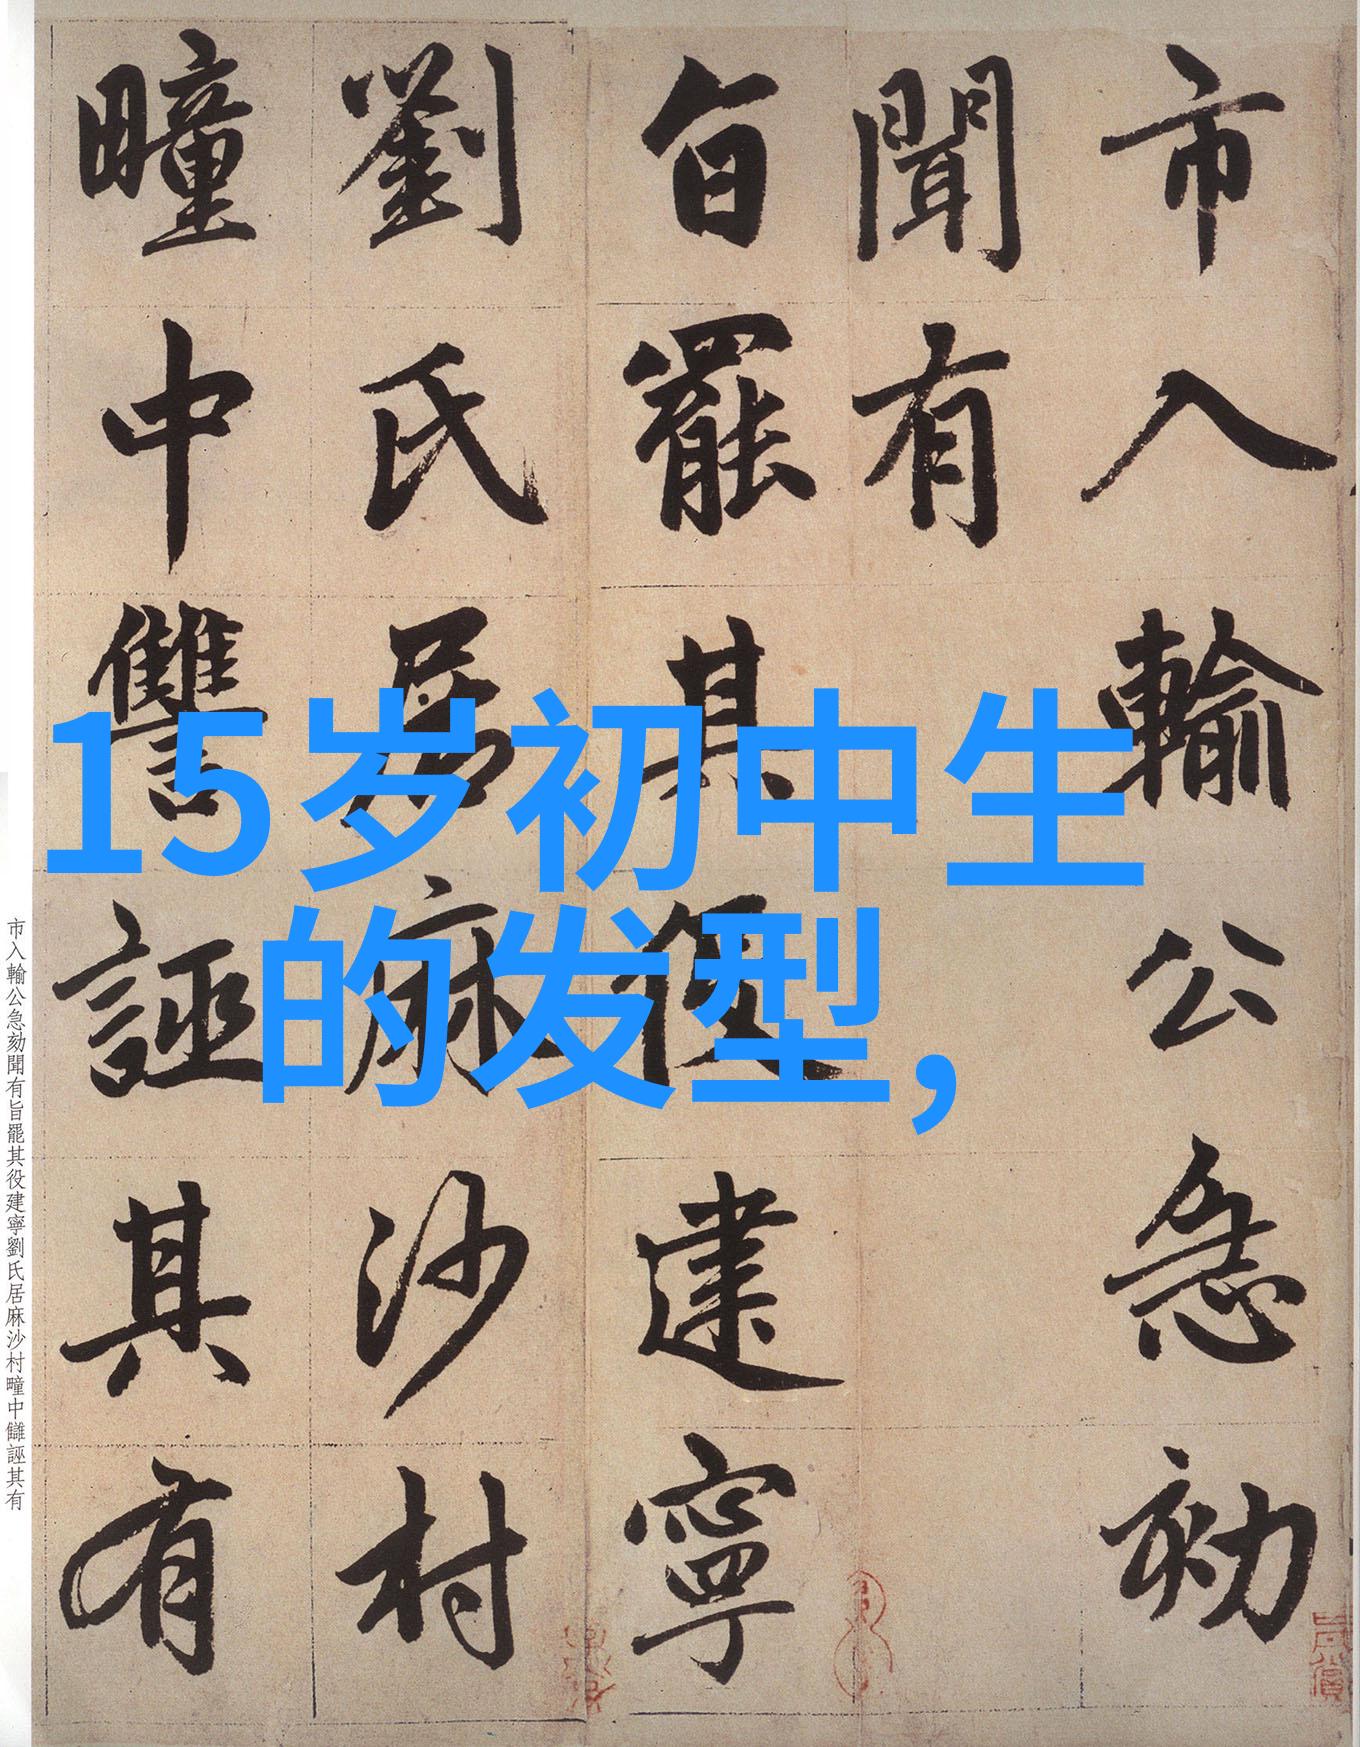 市入輸公急劾
聞有
旨罷其役建寧
劉氏居麻沙村
疃中讐誣其有
15岁初中生
的发型，
市入輸公急劾聞有旨罷其役建寧劉氏居麻沙村疃中讎誣其有